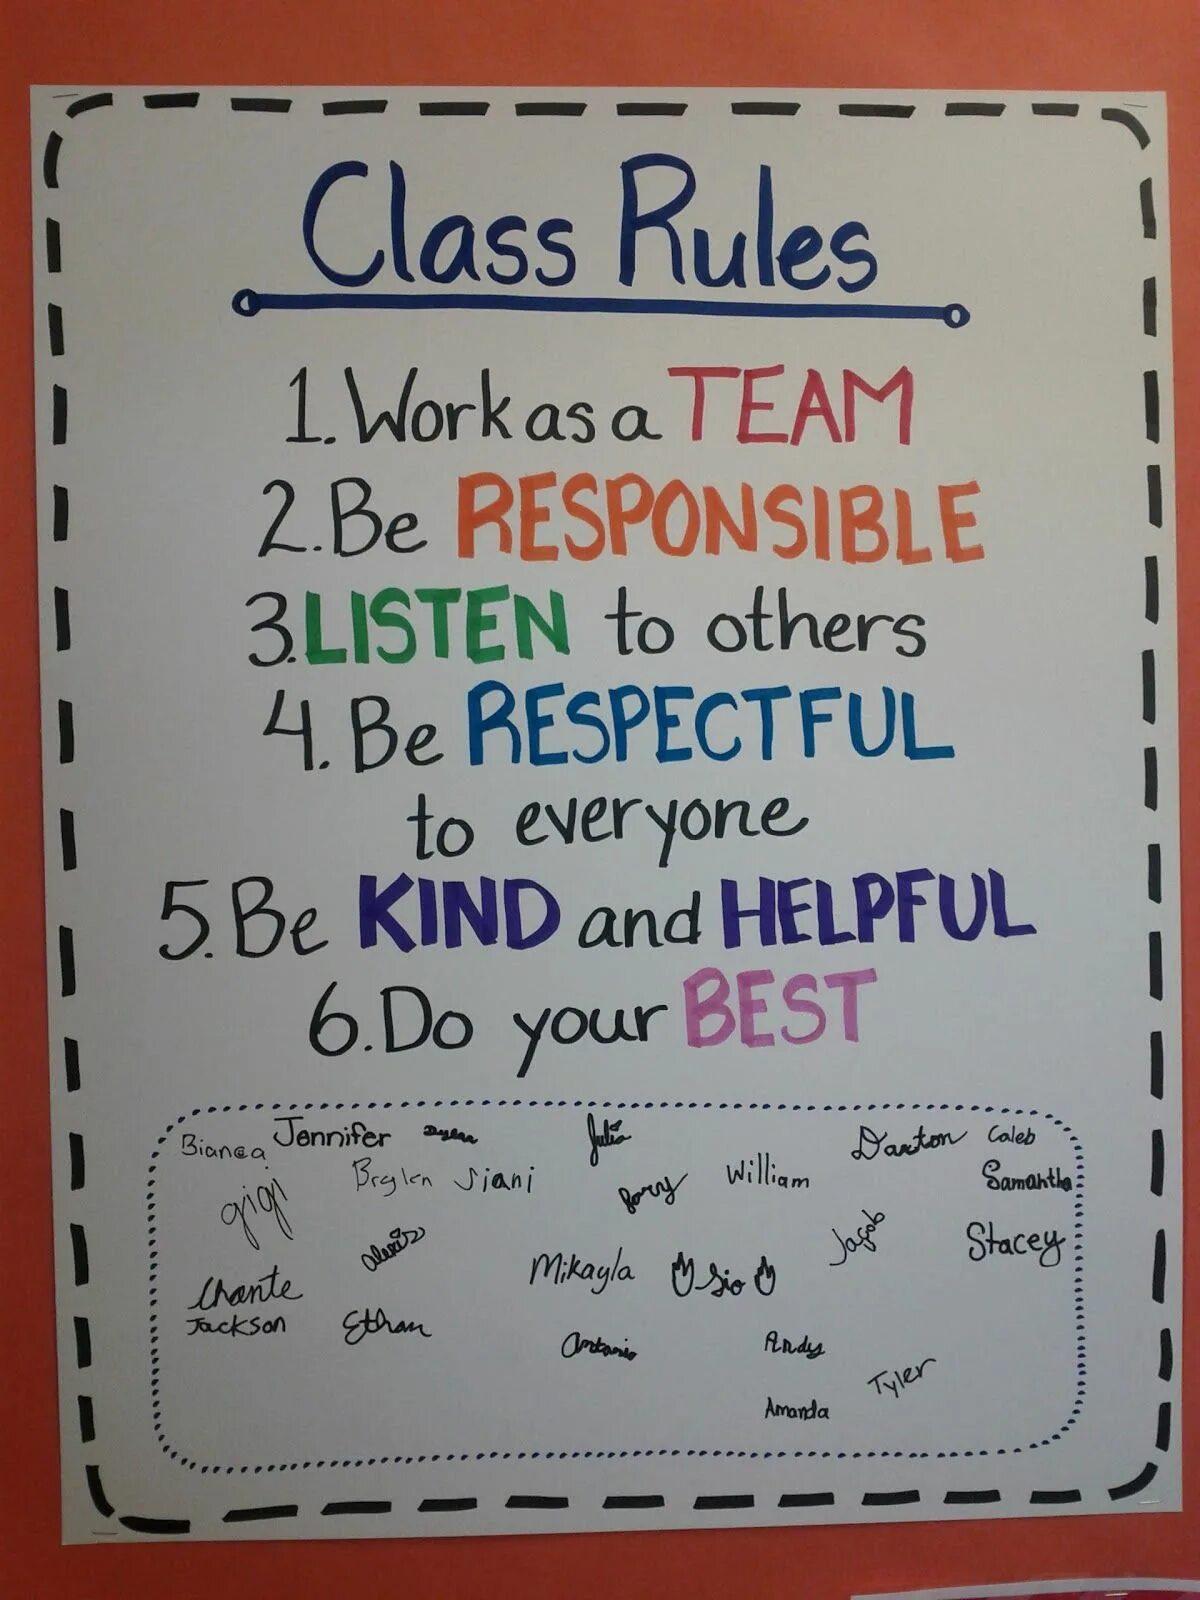 Class Rules
1. Work as a TEAM
2. Be RESPONSIBLE
3. LISTEN to others
4. Be RESPECTFUL
to everyone
5. Be KIND and HELPFUL
6. Do your BEST
Bianca Jennifer Julia Darton Caleb
gigi Siani William Samantha
Alexis Mikayla Jacob Stacey
Chante
Jackson Ethan Antonio Andy
Tyler
Amanda